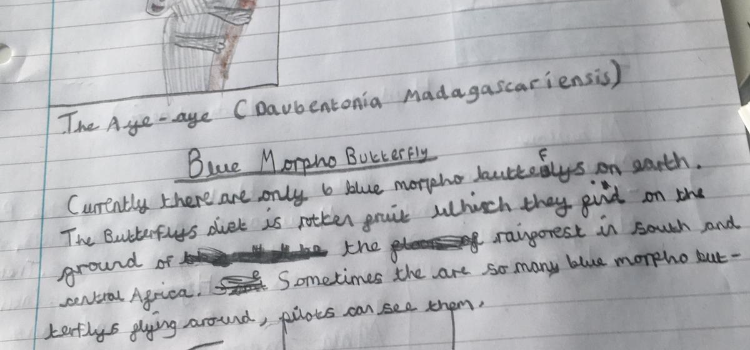 The Aye-aye (Daubentonia Madagascariensis)
Blue Morpho Butterfly
Currently there are only 6 blue morpho butterflys on earth.
The Butterflys diet is rotten fruit which they find on the
ground of the rainforest in south and
central Africa. Sometimes the are so many blue morpho but-
terflys flying around, pilots can see them.